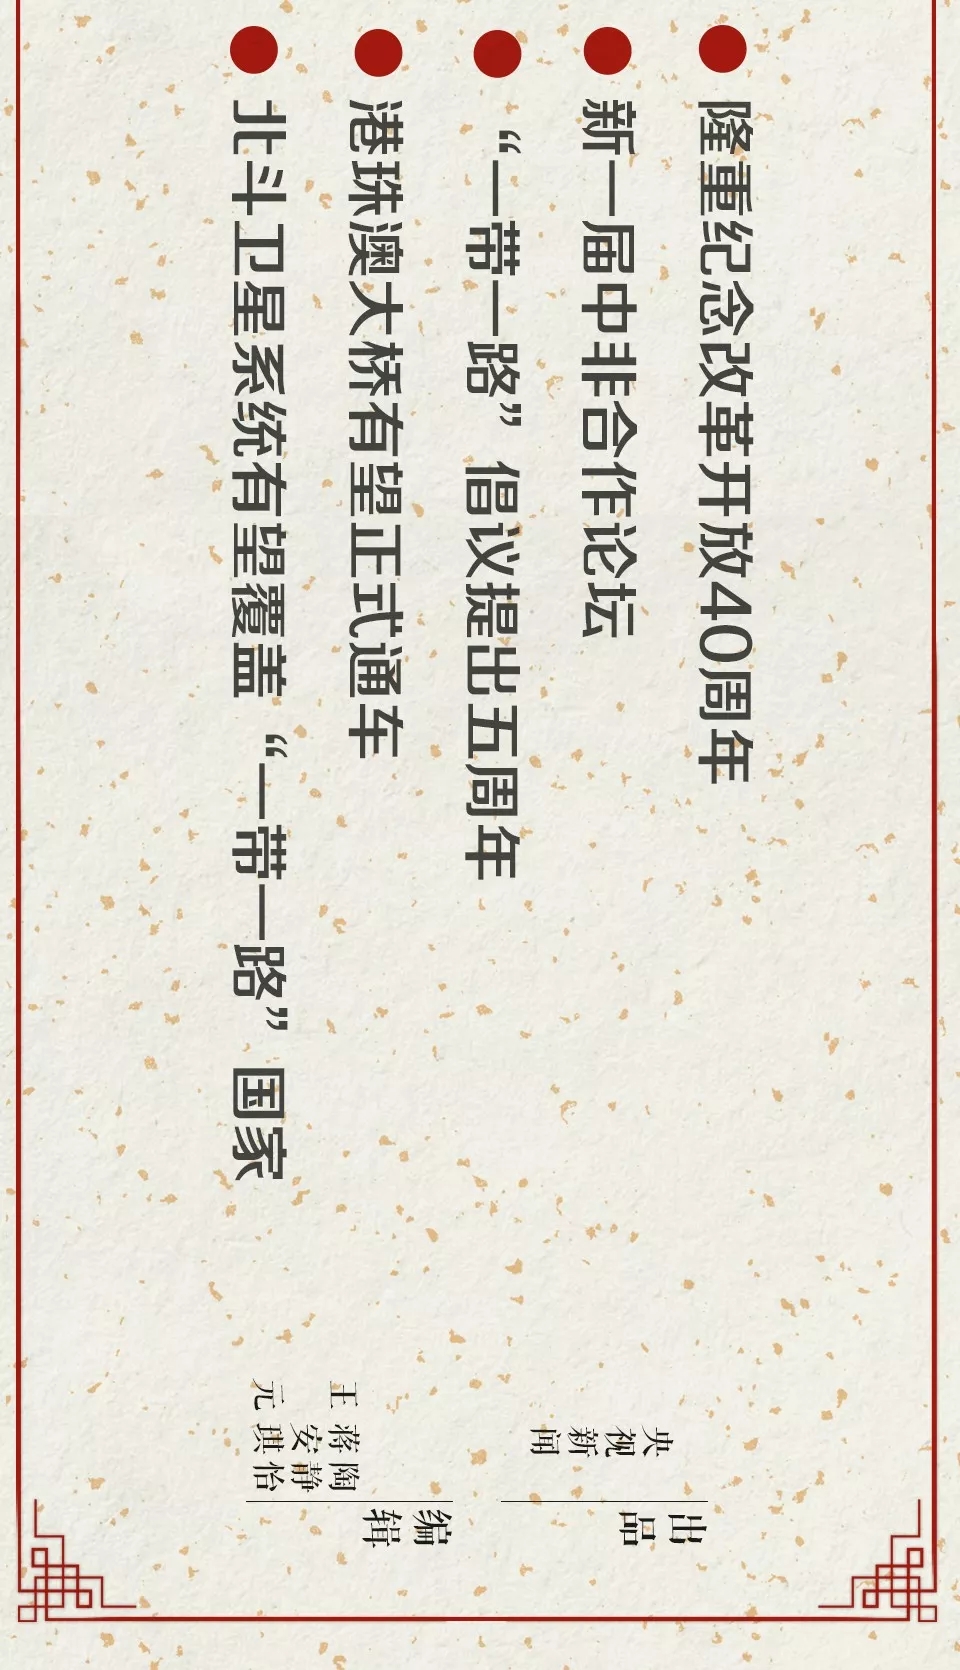 隆重纪念改革开放40周年
新一届中非合作论坛
“一带一路”倡议提出五周年
港珠澳大桥有望正式通车
北斗卫星系统有望覆盖“一带一路”国家
出品
央视新闻
编辑
陶静怡
蒋安琪
王元